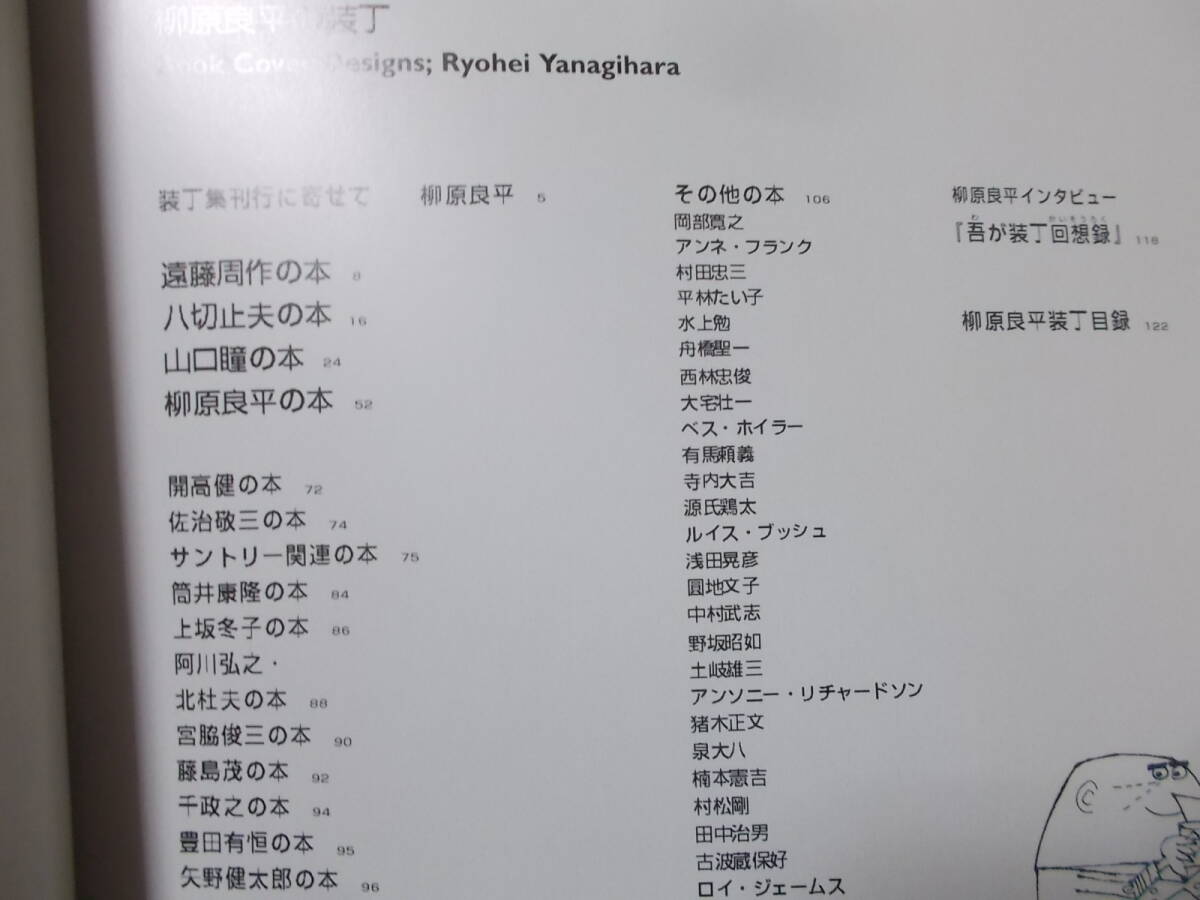 柳原良平の装丁
Book Cover Designs; Ryohei Yanagihara
装丁集刊行に寄せて 柳原良平 5
遠藤周作の本 8
八切止夫の本 16
山口瞳の本 24
柳原良平の本 52
開高健の本 72
佐治敬三の本 74
サントリー関連の本 75
筒井康隆の本 84
上坂冬子の本 86
阿川弘之・
北杜夫の本 88
宮脇俊三の本 90
藤島茂の本 92
千政之の本 94
豊田有恒の本 95
矢野健太郎の本 96
その他の本 106
岡部寛之
アンネ・フランク
村田忠三
平林たい子
水上勉
舟橋聖一
西林忠俊
大宅壮一
ベス・ホイラー
有馬頼義
寺内大吉
源氏鶏太
ルイス・ブッシュ
浅田晃彦
圓地文子
中村武志
野坂昭如
土岐雄三
アンソニー・リチャードソン
猪木正文
泉大八
楠本憲吉
村松剛
田中治男
古波蔵保好
ロイ・ジェームス
柳原良平インタビュー
『吾が装丁回想録』 118
柳原良平装丁目録 122